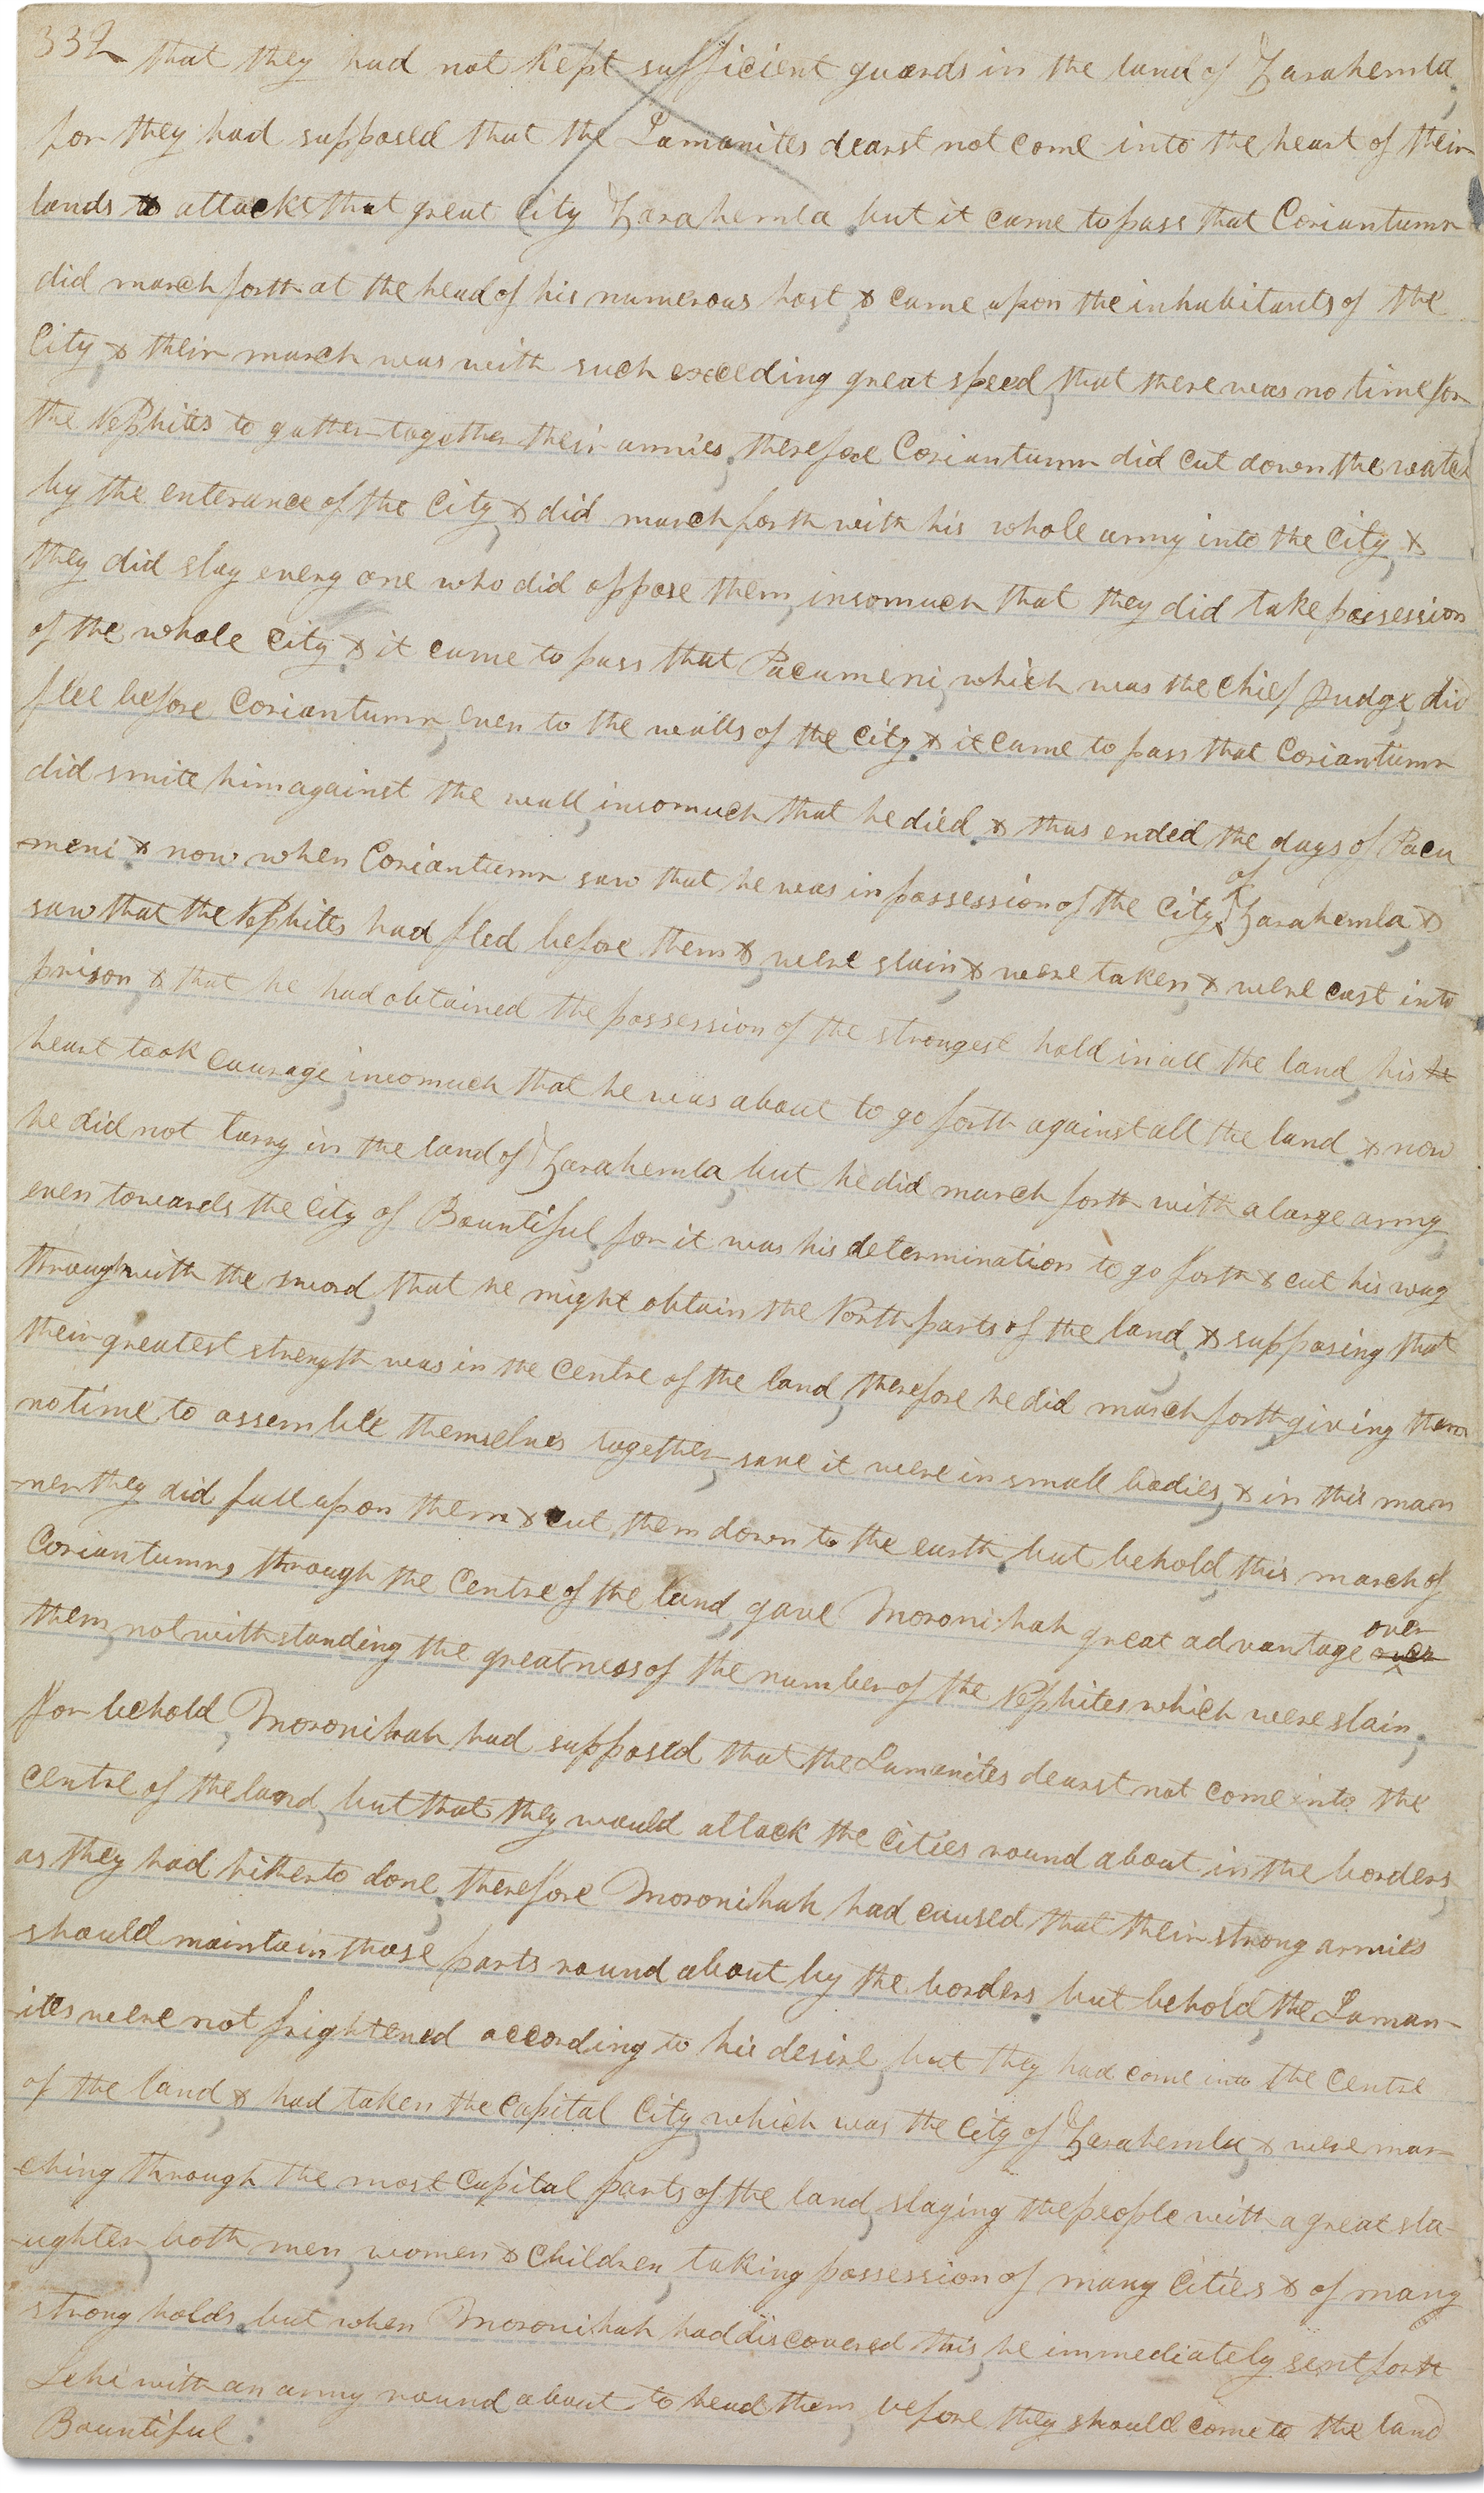 332 that they had not kept sufficient guards in the land of Zarahemla;
for they had supposed that the Lamanites dearst not come into the heart of their
lands to attackt that great City Zarahemla. but it came to pass that Coriantumr
did march forth at the head of his numerous host, & came upon the inhabitants of the
City, & their march was with such exceeding great speed, that there was no time for
the Nephites to gather together their armies. therefore Coriantumr did cut down the watch
by the enterance of the City, & did march forth with his whole army into the City, &
they did slay eveng one who did oppose them, insomuch that they did take possession
of the whole City & it came to pass that Pacumeni, which was the Chief Judge, did
flee before Coriantumr, even to the walls of the City. & it came to pass that Coriantumr
did smite him against the wall, insomuch that he died. & thus ended the days of Pacu
-meni. & now when Coriantumr saw that he was in possession of the City, of Zarahemla, &
saw that the Nephites had fled before them, & were slain, & were taken, & were cast into
prison, & that he had obtained the possession of the strongest hold in all the land, his he
heart took courage, insomuch that he was about to go forth against all the land. & now
he did not tarry in the land of Zarahemla, but he did march forth with a large army,
even towards the City of Bountiful. for it was his determination to go forth & cut his way
through with the sword, that he might obtain the North parts of the land. & supposing that
their greatest strength was in the Centre of the land, therefore he did march forth, giving them
no time to assemble themselves together, save it were in small bodies, & in this man
-ner they did fall upon them & cut them down to the earth. but behold, this march of
Coriantumrs through the Centre of the land, gave Moronihah great advantage over over
them, notwithstanding the greatness of the number of the Nephites which were slain;
for behold, Moronihah had supposed that the Lamanites dearst not come into the
centre of the land, but that they would attack the Cities round about in the borders,
as they had hitherto done. therefore Moronihah had caused that their strong armies
should maintain those parts round about by the borders. but behold, the Laman-
-ites were not frightened according to his desire, but they had come into the Centre
of the land, & had taken the Capital City, which was the City of Zarahemla, & were mar-
-ching through the most Capital parts of the land, slaying the people with a great sla-
-ughter, both men, women, & Children, taking possession of many Cities & of many
strong holds. but when Moronihah had discovered this, he immediately sent forth
Lehi with an army round about to head them, before they should come to the land
Bountiful.